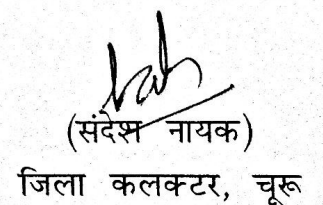 (संदेश नायक)
जिला कलक्टर, चूरू